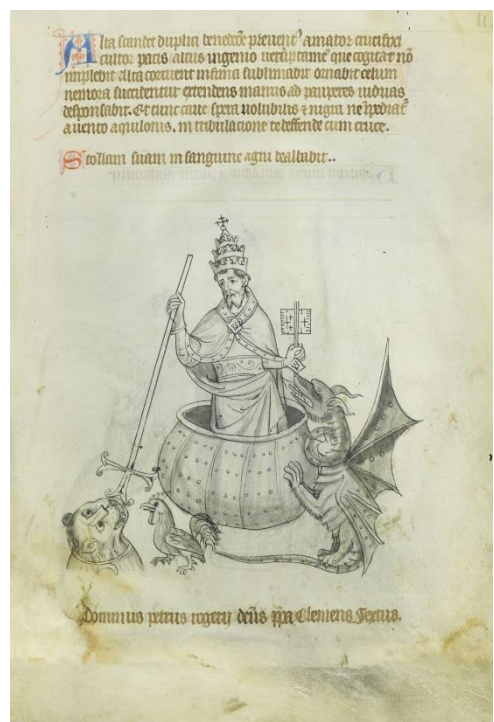 11
Alta scandet duplici benedictōe prevent᷒ amator crucifixi
cultor pacis altus ingenio verūptamē que cogitat nō
implebit alta corruent infima sublimabit ornabit celum
nemora succidentur extendens manus ad pauperes viduas
desponsabit. Et tunc cave spera volubilis ⁊ nigra ne īpediat̄
a vento aquilonis. in tribulacione te defende cum cruce.
Stollam suam in sanguine agni dealbabit..
Dominus petrus rogerij deīs pp̄a Clemens Sextus.